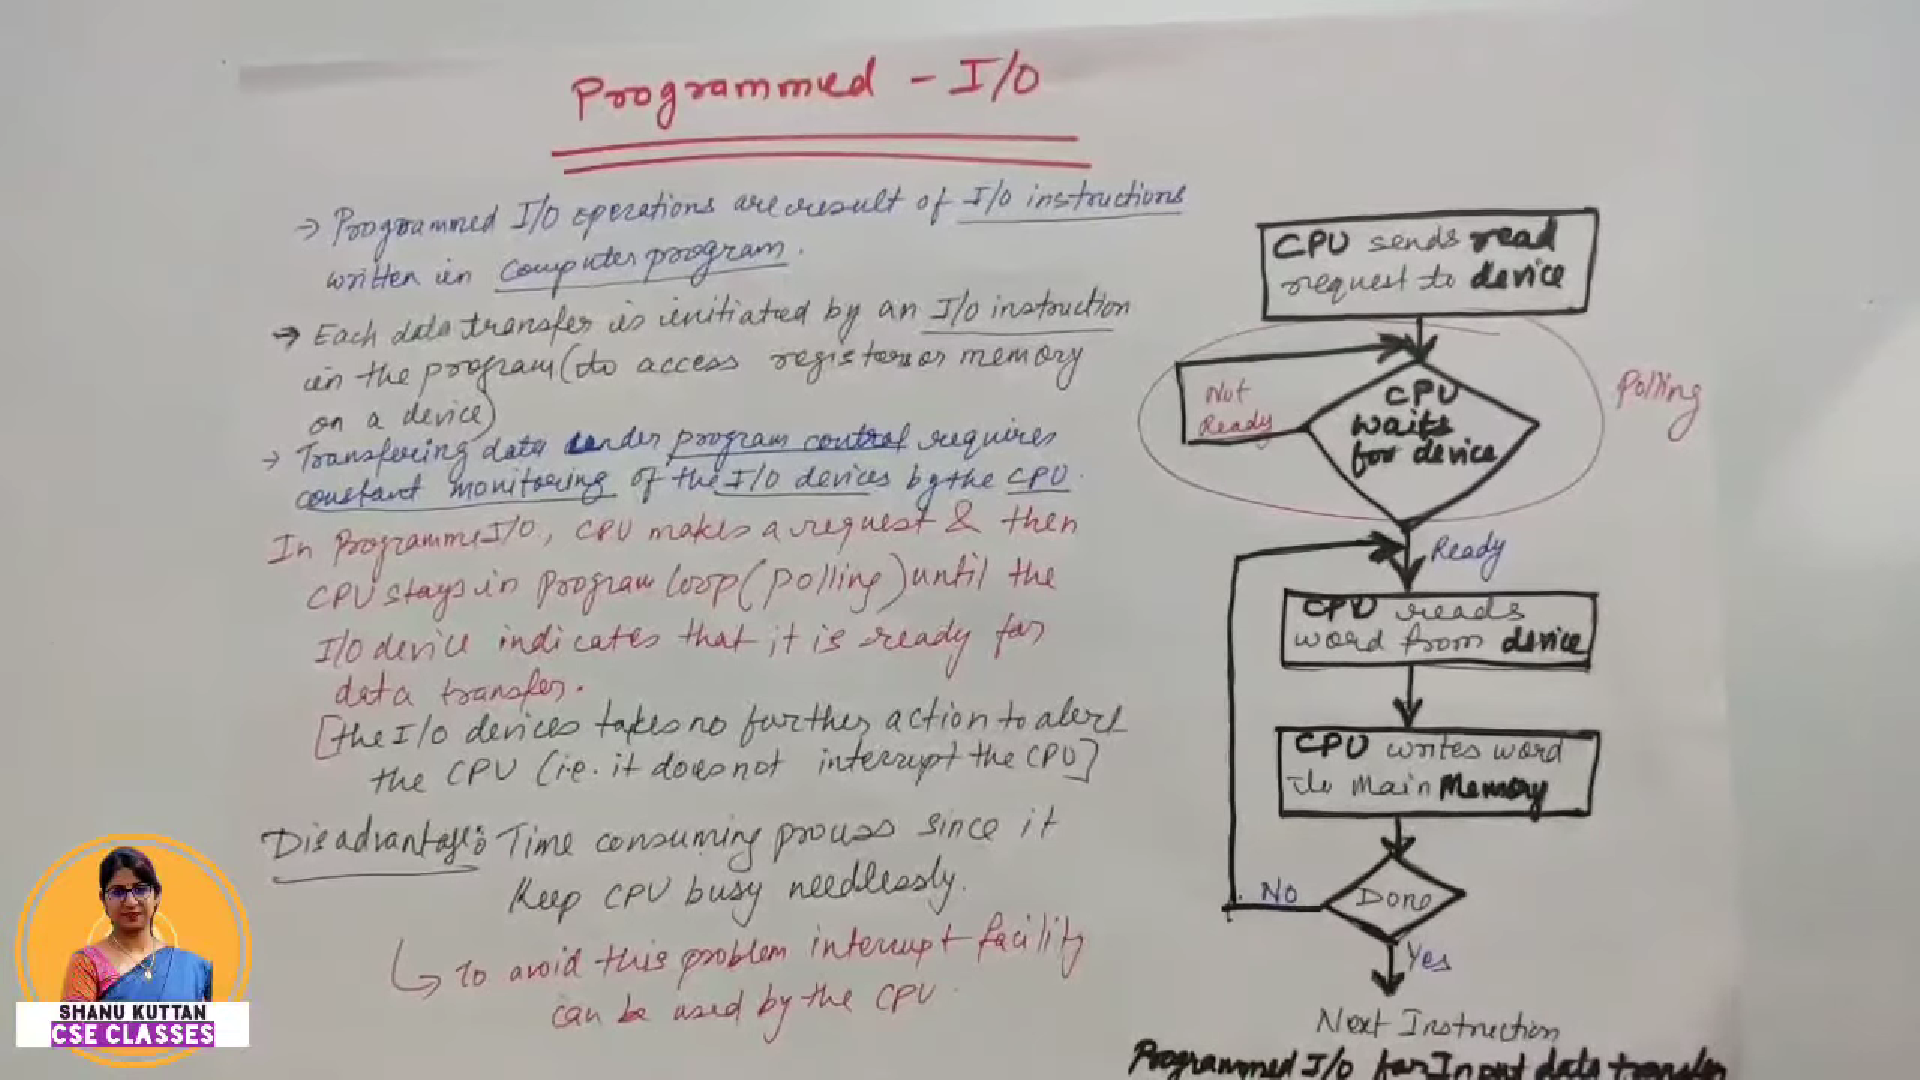 Programmed - I/O
→ Programmed I/O operations are result of I/O instructions
written in computer program.
→ Each data transfer is initiated by an I/O instruction
in the program (to access registers or memory
on a device)
→ Transfering data under program control requires
constant monitoring of the I/O devices by the CPU.
In Programme I/O, CPU makes a request & then
CPU stays in program loop (polling) until the
I/O device indicates that it is ready for
data transfer.
[the I/O devices takes no further action to alert
the CPU (i.e. it does not interrupt the CPU]
Disadvantage: Time consuming process since it
Keep CPU busy needlessly.
↳ To avoid this problem interrupt facility
can be used by the CPU.
CPU sends read
request to device
Not
Ready
CPU
waits
for device
Polling
Ready
CPU reads
word from device
CPU writes word
to Main Memory
No
Done
Yes
Next Instruction
Programmed I/O for Input data transfer
SHANU KUTTAN
CSE CLASSES